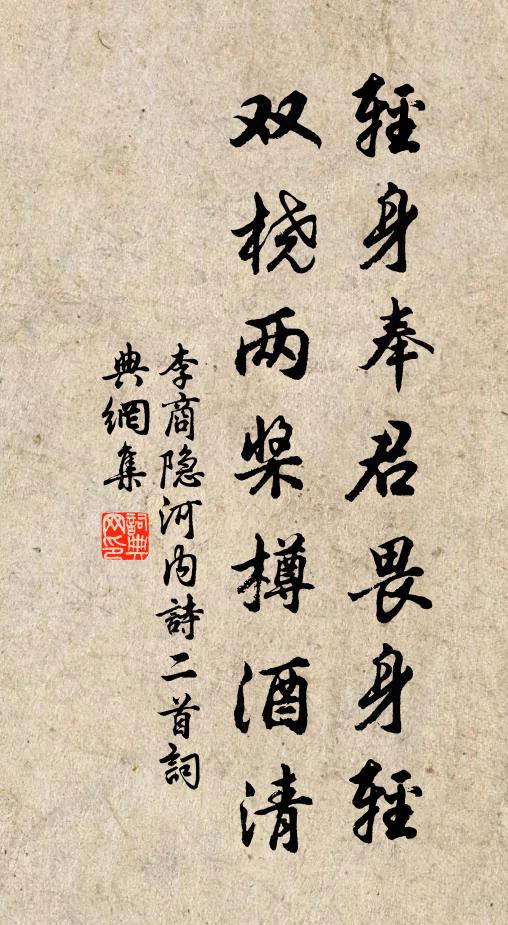 輕身奉君畏身輕
双桡两桨樽酒清
李商隐河内詩二首詞
典網集
詞典
网印